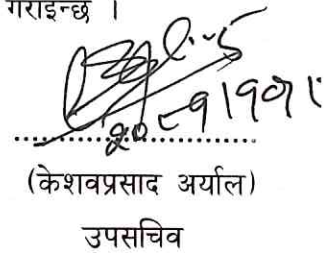 गराइन्छ ।
....................
(केशवप्रसाद अर्याल)
उपसचिव